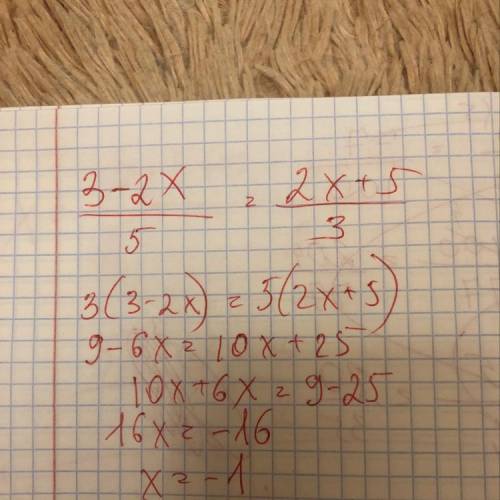 3-2x/5 = 2x+5/3
3(3-2x)=5(2x+5)
9-6x=10x+25
10x+6x=9-25
16x=-16
x=-1